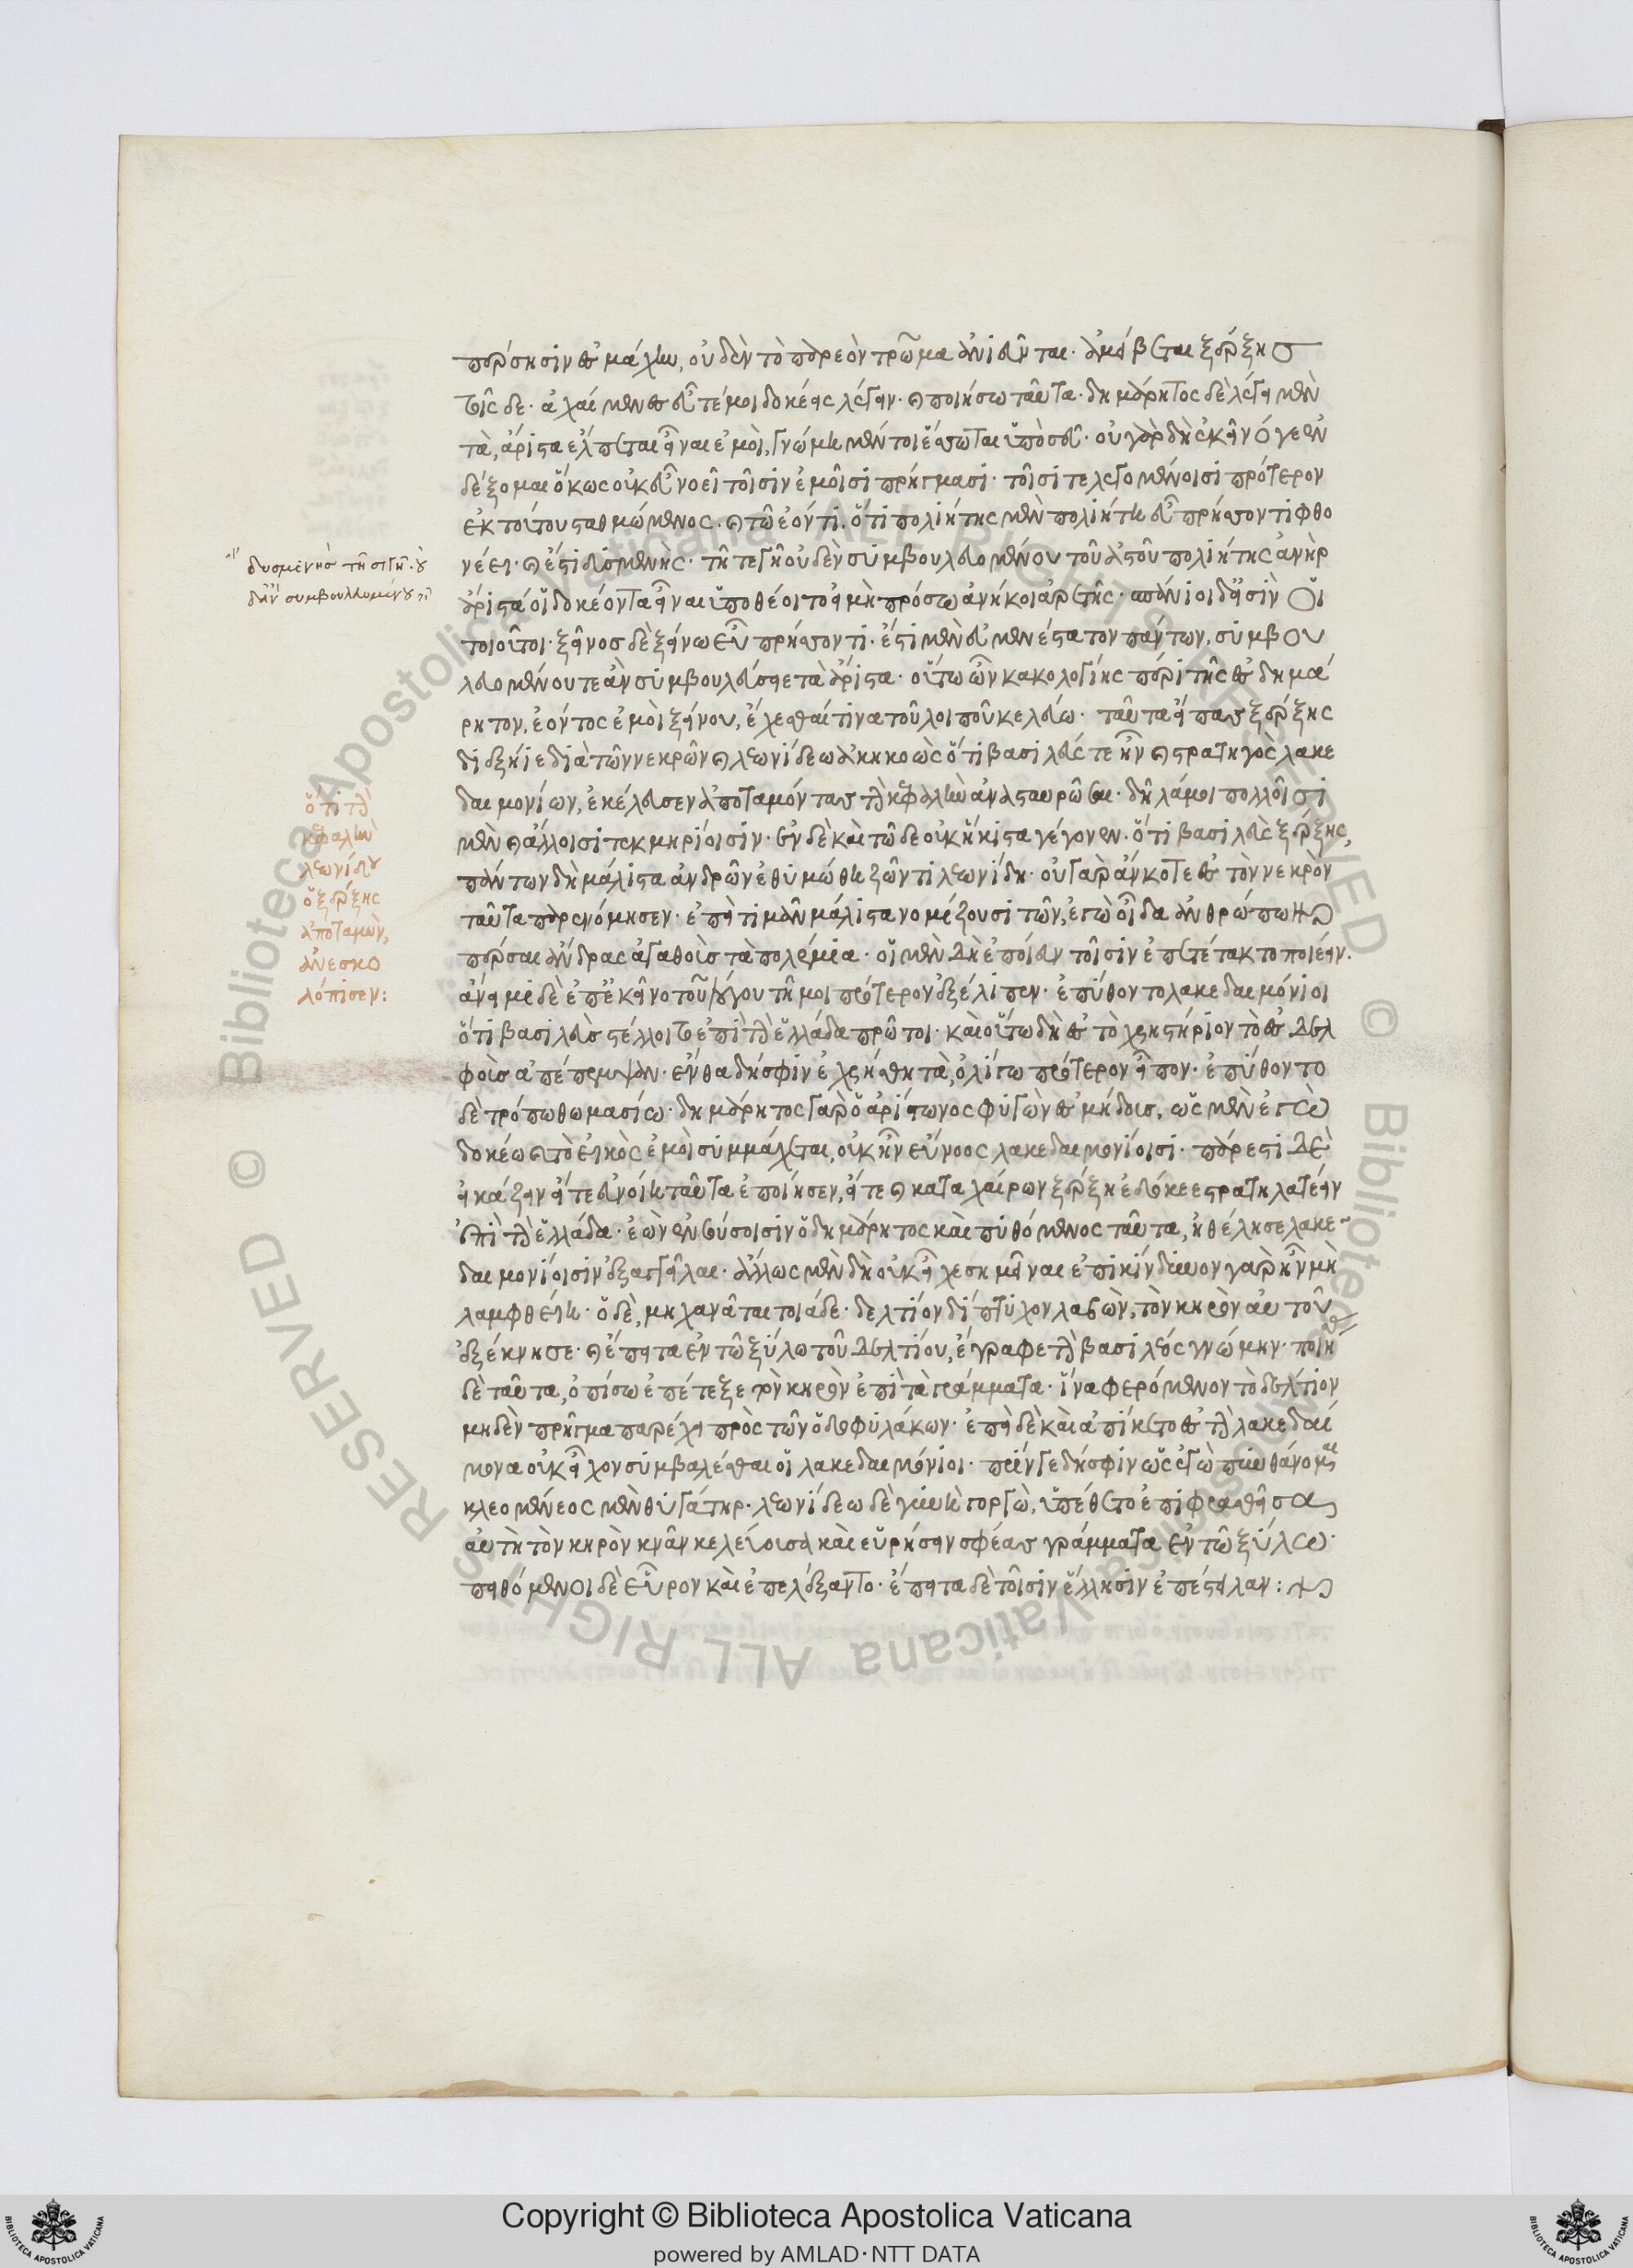 πέρσησιν ἐς μάχην, οὐδὲν τὸ παρεὸν τρῶμα ἀνιεῦνται. ἀμείβεται ξέρξης
τοῖς δε· ἀχαίμενες εὖ τέ μοι δοκέεις λέγειν· καὶ ποιήσω ταῦτα. δημάρητος δὲ λέγει μὲν
τὰ ἄριστα ἔλπεται εἶναι ἐμοὶ, γνώμη μέντοι ἑσσοῦται ὑπὸ σεῦ· οὐ γὰρ δὴ ἐκεῖνό γε ἐν
δέξομαι ὅκως οὐκ εὐνοεῖ τοῖσιν ἐμοῖσι πρήγμασι· τοῖσί τε λεγομένοισι πρότερον
ἐκ τούτου σταθμώμενος. καὶ τῶ ἐόντι. ὅτι πολιήτης μὲν πολιήτη εὖ πρήσσοντι φθο
νέει· καὶ ἔστι δυσμενὴς· τῆ τε γῆ οὐδὲν συμβουλευομένου τοῦ ἀστοῦ πολιήτης ἀνὴρ
ἄριστά οἱ δοκέοντα εἶναι ὑποθέοιτο εἰ μὴ πρόσω ἀνήκοι ἀρετῆς· σπάνιοι δ' εἰσὶν οἱ
τοιοῦτοι· ξεῖνος δὲ ξείνω εὖ πρήσσοντι. ἐστὶ μὲν εὐμενέστατον πάντων, συμβου
λευομένου τε ἂν συμβουλεύσειε τὰ ἄριστα· οὕτω ὦν κακολογίης πέρι τῆς ἐς δημά
ρητον, ἐόντος ἐμοὶ ξείνου, ἔχεσθαί τινα τοῦ λοιποῦ κελεύω· ταῦτα εἴπας ξέρξης
διεξήιε διὰ τῶν νεκρῶν καὶ λεωνίδεω ἀκηκοὼς ὅτι βασιλεύς τε ἦν καὶ στρατηγὸς λακε
δαιμονίων, ἐκέλευσεν ἀποταμόντας τὴν κεφαλὴν ἀνασταυρῶσαι· δῆλά μοι πολλοῖσι
μὲν καὶ ἄλλοισι τεκμηρίοισιν· ἐν δὲ καὶ τῶδε οὐκ ἥκιστα γέγονεν. ὅτι βασιλεὺς ξέρξης,
πάντων δὴ μάλιστα ἀνδρῶν ἐθυμώθη ζῶντι λεωνίδη· οὐ γὰρ ἄν κοτε ἐς τὸν νεκρὸν
ταῦτα παρενόμησεν· ἐπεὶ τιμᾶν μάλιστα νομίζουσι τῶν, ἐγὼ οἶδα ἀνθρώπων
πέρσαι ἄνδρας ἀγαθοὺς τὰ πολέμια· οἱ μὲν δὴ ἐποίευν τοῖσιν ἐπετέτακτο ποιέειν.
ἄνειμι δὲ ἐπ' ἐκεῖνο τοῦ λόγου τῆ μοι πρότερον ἐξέλιπεν· ἐπύθοντο λακεδαιμόνιοι
ὅτι βασιλεὺς στέλλοιτο ἐπὶ τὴν ἑλλάδα πρῶτοι· καὶ οὕτω δὴ ἐς τὸ χρηστήριον τὸ ἐς δελ
φοὺς ἀπέπεμψαν· ἔνθα δή σφιν ἐχρήσθη τὰ ὀλίγω πρότερον εἶπον· ἐπύθοντο
δὲ τρόπω θωμασίω· δημάρητος γὰρ ὁ ἀρίστωνος φυγὼν ἐς μήδους, ὡς μὲν ἐγὼ
δοκέω καὶ τὸ εἰκὸς ἐμοὶ συμμάχεται, οὐκ ἦν εὔνοος λακεδαιμονίοισι· πάρεστι δὲ
εἰκάζειν εἴτε εὐνοίη ταῦτα ἐποίησεν, εἴτε καὶ καταχαίρων ξέρξη ἐδόκεε στρατηλατέειν
ἐπὶ τὴν ἑλλάδα· ἐὼν ἐν σούσοισιν ὁ δημάρητος καὶ πυθόμενος ταῦτα, ἠθέλησε λακε
δαιμονίοισιν ἐξαγγεῖλαι. ἄλλως μὲν δὴ οὐκ εἶχε σημῆναι ἐπικίνδυνον γὰρ ἦν μὴ
λαμφθείη· ὁ δὲ, μηχανᾶται τοιάδε· δελτίον δίπτυχον λαβὼν, τὸν κηρὸν αὐτοῦ
ἐξέκνησε· καὶ ἔπειτα ἐν τῶ ξύλω τοῦ δελτίου, ἔγραφε τὴν βασιλέος γνώμην· ποιήσας
δὲ ταῦτα, ὀπίσω ἐπέτηξε τὸν κηρὸν ἐπὶ τὰ γράμματα· ἵνα φερόμενον τὸ δελτίον
μηδὲν πρῆγμα παρέχη πρὸς τῶν ὁδοφυλάκων· ἐπεὶ δὲ καὶ ἀπίκετο ἐς τὴν λακεδαί
μονα οὐκ εἶχον συμβαλέσθαι οἱ λακεδαιμόνιοι· πρίν γε δή σφιν ὡς ἐγὼ πυνθάνομαι
κλεομένεος μὲν θυγάτηρ· λεωνίδεω δὲ γυνὴ γοργὼ, ὑπέθετο ἐπιφρασθεῖσα
αὐτὴ τὸν κηρὸν κνᾶν κελεύουσα καὶ εὑρήσειν σφέας γράμματα ἐν τῶ ξύλω·
πειθόμενοι δὲ εὗρον καὶ ἐπελέξαντο· ἔπειτα δὲ τοῖσιν ἕλλησιν ἐπέστειλαν:
δυσμενὴς τῆ σιγῆ· οὐ
δὲν συμβουλευομένου
ὅτι τὴν
κεφαλὴν
λεωνίδου
ὁ ξέρξης
ἀποταμὼν,
ἀνεσκο
λόπισεν:
© Biblioteca Apostolica Vaticana ALL RIGHTS RESERVED
© Biblioteca Apostolica Vaticana ALL RIGHTS RESERVED
Copyright © Biblioteca Apostolica Vaticana
powered by AMLAD·NTT DATA
BIBLIOTECA APOSTOLICA VATICANA
BIBLIOTECA APOSTOLICA VATICANA